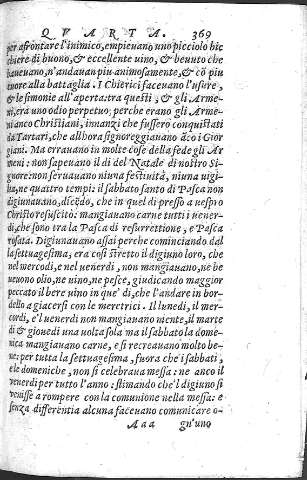 QVARTA. 369
per afrontare l'inimico, empieuano uno picciolo bic
chiere di buono, & eccellente uino, & beuuto che
haueuano, n'andauan piu animosamente, & cō piu
cuore alla battaglia. I Chierici faceuano l'usure,
& le simonie all'aperta: tra questi, & gli Arme-
ni, era uno odio perpetuo; perche erano gli Arme-
ni anco Christiani, innanzi che fussero conquistati
da Tartari, che allhora signoreggiauano ācoi Gior
giani. Ma errauano in molte cose della fede gli Ar
meni: non sapeuano il di del Natale di nostro Si-
gnore: non seruauano niuna festiuità, niuna uigi-
lia, ne quattro tempi: il sabbato santo di Pasca non
digiunauano, dicēdo, che in quel dì presso a uespro
Christo resuscitò: mangiauano carne tutti i uener-
di, che sono tra la Pasca di resurrettione, e Pasca
rosata. Digiunauano assai perche cominciando dal
la settuagesima, era cosi stretto il digiuno loro, che
nel mercodi, e nel uenerdi, non mangiauano, ne be
ueuano olio, ne uino, ne pesce, giudicando maggior
peccato il bere uino in que' dì, che l'andare in bor-
dello a giacersi con le meretrici. Il lunedi, il mer-
cordi, e l'uenerdi non mangiauano niente, il marte
di & giouedi una uolta sola ma il sabbato la dome-
nica mangiauano carne, e si recreauano molto be-
ne: per tutta la settuagesima, fuora che i sabbati,
e le domeniche, non si celebraua messa: ne anco il
uenerdi per tutto l'anno: stimando che'l digiuno si
uenisse a rompere con la comunione nella messa: e
senza differentia alcuna faceuano comunicare o-
Aaa gn'uno